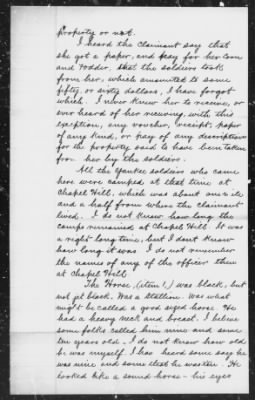 property or not.
I heard the claimant say that
she got a paper, and pay for her corn
and fodder, that the soldiers took
from her, which amounted to some
fifty, or sixty dollars, I have forgot
which. I never knew her to receive, or
ever heard of her receiving, with this
exception, any voucher, receipt paper
of any kind, or pay of any description
for the property said to have been taken
from her by the soldiers.
All the Yankee soldiers who came
here were camped at that time at
Chapel Hill, which was about one mile
and a half from where the claimant
lived. I do not know how long the
camps remained at Chapel Hill. It was
a right long time, but I dont know
how long it was. I do not remember
the names of any of the officers then
at Chapel Hill.
The Horse, (item 1,) was black, but
not jet black. Was a stallion. Was what
might be called a good sized horse. He
had a heavy neck and breast. I believe
some folks called him nine and some
ten years old. I do not know how old
he was myself. I has heard some say he
was nine and some that he wasten. He
looked like a sound horse - his eyes